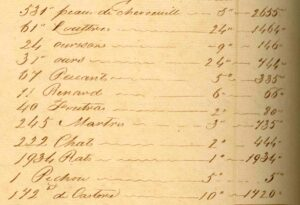 531 peau de chevreuill 5" 2655"
61" Louttres 24" 1464"
24 ourson 9"
31" ours 24" 744"
67 Pecant 5" 335"
11 Renard 6 66"
40 Foutros 2" 80"
245 Martres 3" 735"
222 Chat 2" 444"
1934 Rat 1" 1934"
1 Pichou 5" 5"
172 d Castors 10" 1720"